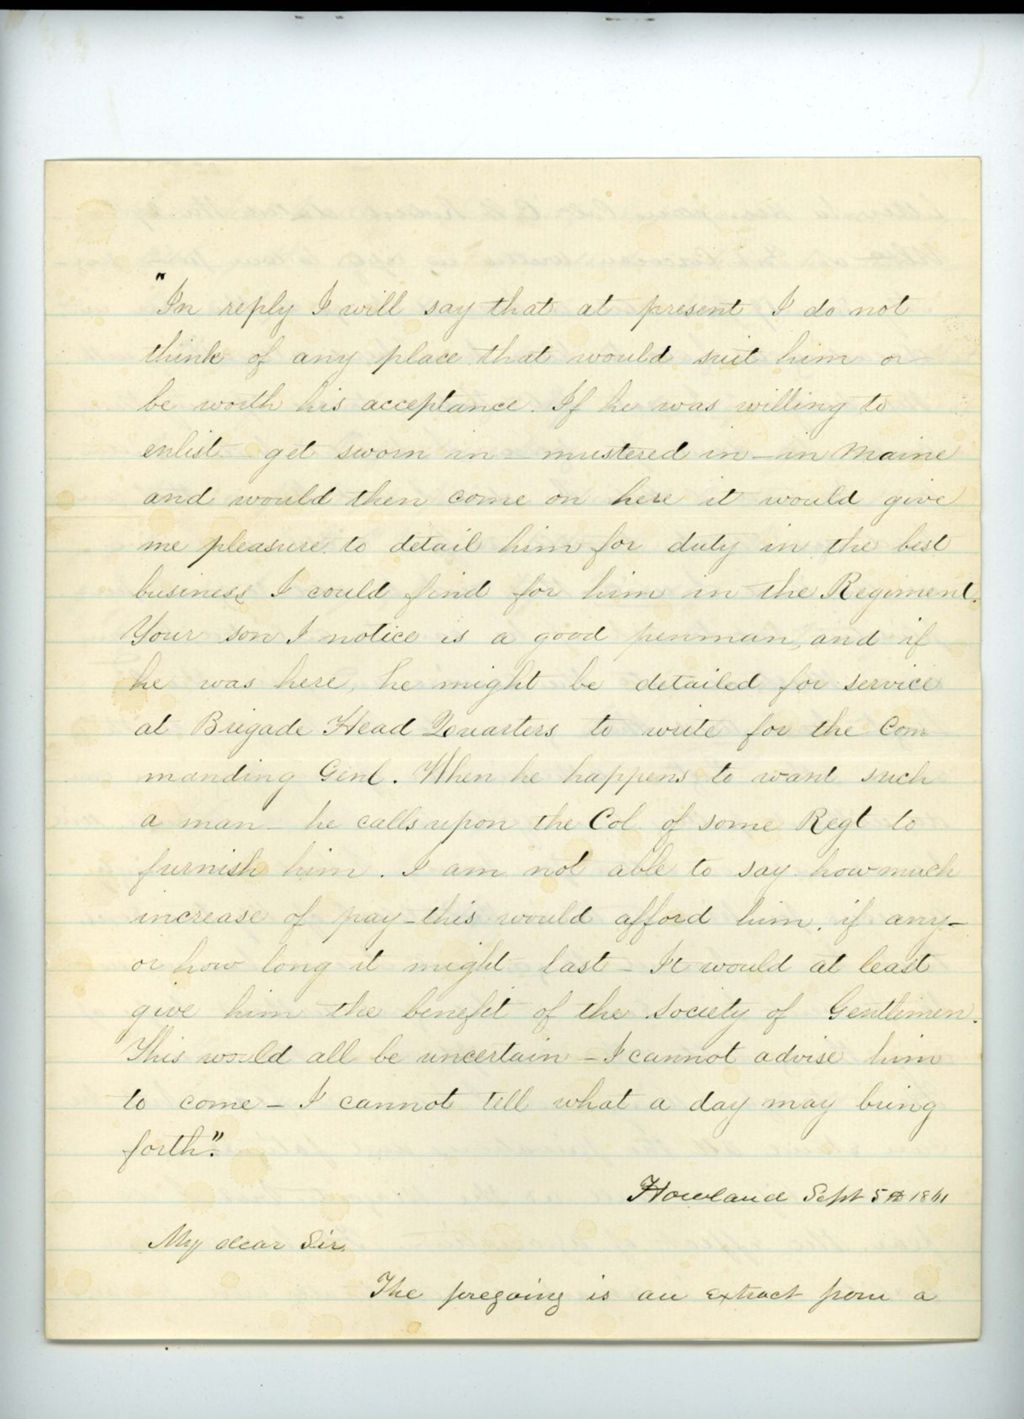 "In reply I will say that at present I do not
think of any place that would suit him or
be worth his acceptance. If he was willing to
enlist - get sworn in - mustered in - in Maine
and would then come on here it would give
me pleasure to detail him for duty in the best
business I could find for him in the Regiment.
Your son I notice is a good penman, and if
he was here, he might be detailed for service
at Brigade Head Quarters to write for the Com
manding Genl. When he happens to want such
a man - he calls upon the Col. of some Regt to
furnish him. I am not able to say how much
increase of pay - this would afford him, if any -
or how long it might last - It would at least
give him the benefit of the society of Gentlemen.
This would all be uncertain - I cannot advise him
to come - I cannot tell what a day may bring
forth."
Howland Sept 5th 1861
My dear Sir,
The foregoing is an extract from a